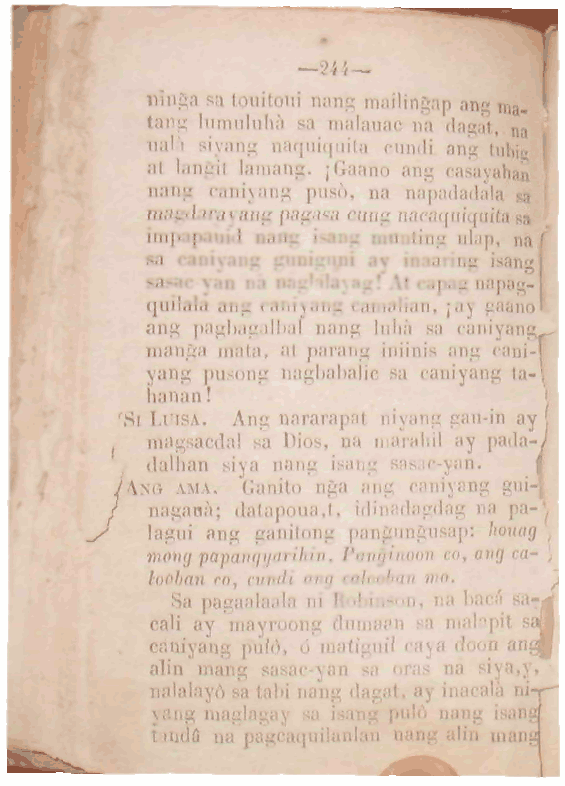 —244—
ninğa sa touitoui nang mailinğap ang ma-
tang lumuluhà sa malauac na dagat, na
ualà siyang naquiquita cundi ang tubig
at lanğit lamang. ¡Gaano ang casayahan
nang caniyang pusò, na napadadala sa
magdarayang pagasa cung nacaquiquita sa
impapauid nang isang munting ulap, na
sa caniyang guniguni ay inaaring isang
sasac-yan na naglalayag! At capag napag-
quilala ang caniyang camalian, ¡ay gaano
ang pagbagalbal nang luhà sa caniyang
manğa mata, at parang iniinis ang cani-
yang pusong nagbabalic sa caniyang ta-
hanan!
SI LUISA. Ang nararapat niyang gau-in ay
magsacdal sa Dios, na marahil ay pada-
dalhan siya nang isang sasac-yan.
ANG AMA. Ganito nğa ang caniyang gui-
nagauà; datapoua,t, idinadagdag na pa-
lagui ang ganitong panğunğusap: houag
mong papangyarihin, Panğinoon co, ang ca-
looban co, cundi ang calooban mo.
Sa pagaalaala ni Robinson, na bacá sa-
cali ay mayroong dumaan sa malapit sa
caniyang pulò, ó matiguil caya doon ang
alin mang sasac-yan sa oras na siya,y,
nalalayò sa tabi nang dagat, ay inacalà ni-
yang maglagay sa isang pulô nang isang
tandâ na pagcaquilanlan nang alin mang